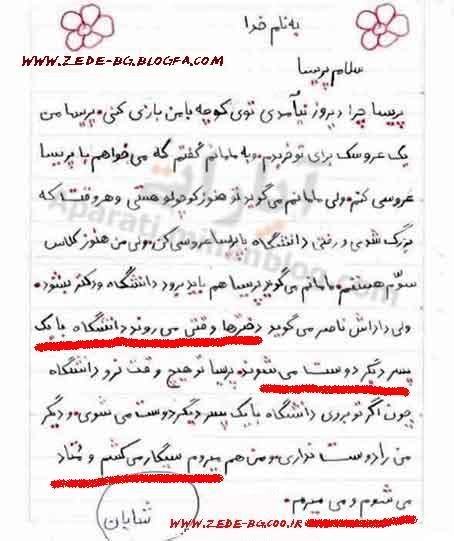 به نام خدا
WWW.ZEDE-BG.BLOGFA.COM
سلام پریسا
پریسا چرا دیروز نیآمدی توی کوچه با من بازی کنی. پریسا من
یک عروسک برای تو خریدم. و به مامانم گفتم که می خواهم با پریسا
عروسی کنم. ولی مامانم می گوید تو هنوز کوچولو هستی و هر وقت که
بزرگ شدی و رفتی دانشگاه با پریسا عروسی کن. ولی من هنوز کلاس
سوّم هستم. مامانم می گوید پریسا هم باید برود دانشگاه و دکتر بشود.
ولی داداش ناصر می گوید دخترها وقتی می روند دانشگاه با یک
پسر دیگر دوست می شوند. پریسا تو هیچ وقت نرو دانشگاه
چون اگر تو بروی دانشگاه با یک پسر دیگر دوست می شوی. و دیگر
من را دوست نداری. و من هم میروم سیگار می کشم و مُتاد
می شوم و می میرم.
شایان
WWW.ZEDE-BG.COO.IR